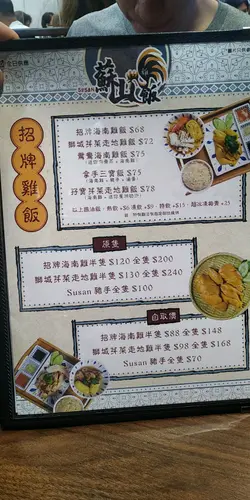 全日供應
SUSAN
蘇山飯
招牌雞飯
招牌海南雞飯 $68
獅城芽菜走地雞飯 $72
鴛鴦海南雞飯 $75
拿手三寶飯 $75
孖寶芽菜走地雞飯 $78
原隻
招牌海南雞半隻 $120 全隻 $200
獅城芽菜走地雞半隻 $130 全隻 $240
Susan 豬手全隻 $100
自取價
招牌海南雞半隻 $88 全隻 $148
獅城芽菜走地雞半隻 $98 全隻 $168
Susan 豬手全隻 $70